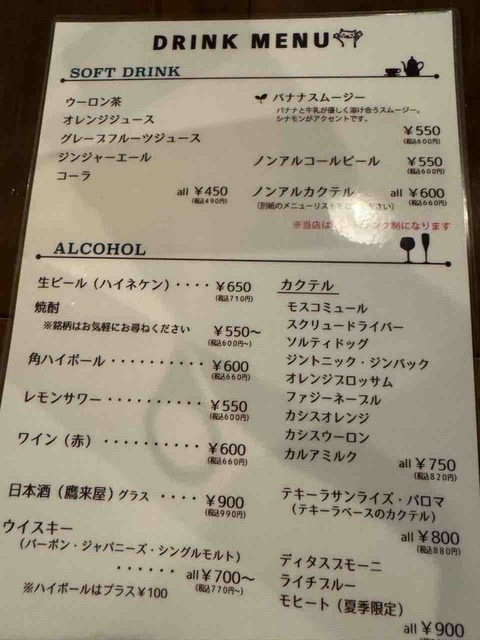 DRINK MENU
SOFT DRINK
ウーロン茶
オレンジジュース
グレープフルーツジュース
ジンジャーエール
コーラ
all ¥450
(税込490円)
バナナスムージー
バナナと牛乳が優しく溶け合うスムージー。
シナモンがアクセントです。
¥550
(税込600円)
ノンアルコールビール ¥550
(税込600円)
ノンアルカクテル all ¥600
(別紙のメニューリストを ださい) (税込660円)
※当店は ンク制になります
ALCOHOL
生ビール（ハイネケン）‥‥ ¥650
(税込710円)
焼酎
※銘柄はお気軽にお尋ねください ¥550～
(税込600円～)
角ハイボール ‥‥‥‥‥ ¥600
(税込660円)
レモンサワー ‥‥‥‥‥ ¥550
(税込600円)
ワイン（赤） ‥‥‥‥‥ ¥600
(税込660円)
日本酒（鷹来屋）グラス ‥‥ ¥900
(税込990円)
ウイスキー
（バーボン・ジャパニーズ・シングルモルト）
‥‥‥ all ¥700～
(税込770円～)
※ハイボールはプラス¥100
カクテル
モスコミュール
スクリュードライバー
ソルティドッグ
ジントニック・ジンバック
オレンジブロッサム
ファジーネーブル
カシスオレンジ
カシスウーロン
カルアミルク
all ¥750
(税込820円)
テキーラサンライズ・パロマ
（テキーラベースのカクテル）
all ¥800
(税込880円)
ディタスプモーニ
ライチブルー
モヒート（夏季限定）
all ¥900